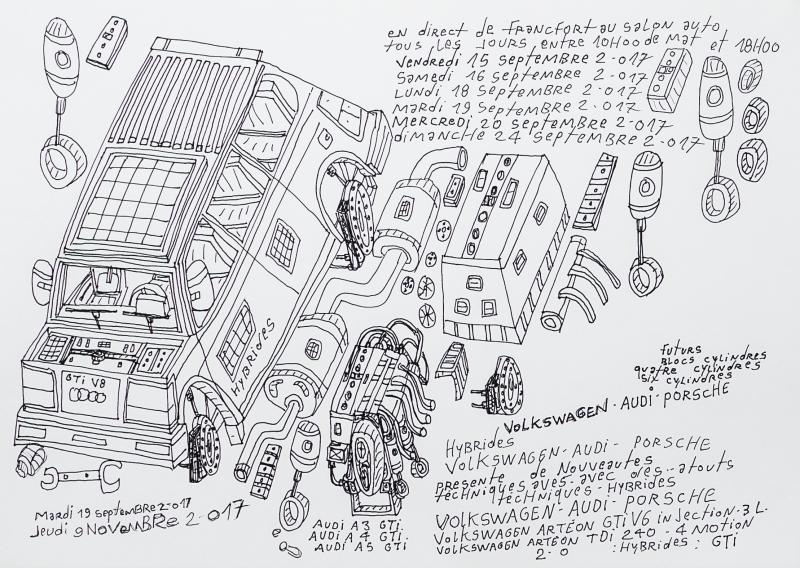 en direct de Francfort au salon auto
tous les jours entre 10H00 de mat et 18H00
Vendredi 15 septembre 2.017
Samedi 16 septembre 2.017
Lundi 18 septembre 2.017
mardi 19 septembre 2.017
Mercredi 20 septembre 2.017
dimanche 24 septembre 2.017
GTi V8
HYBRIDES
Futurs
Blocs cylindres
quatre cylindres
six cylindres
VOLKSWAGEN. AUDi. PORSCHE
HYBRIDES
VOLKSWAGEN-AUDi- PORSCHE
présente de Nouveautes
techniques aves-avec des-atouts
techniques-HYBRIDES
VOLKSWAGEN-AUDi-PORSCHE
VOLKSWAGEN ARTÉON GTi V6 inJection.3L.
VOLKSWAGEN ARTEON TDi 240 - 4 MOTION
2.0 :HYBRides: GTi
Mardi 19 septembre 2.017
Jeudi 9 NOVEMBRE 2.017
AUDi A3 GTi.
AUDi A4 GTi.
AUDi A5 GTi